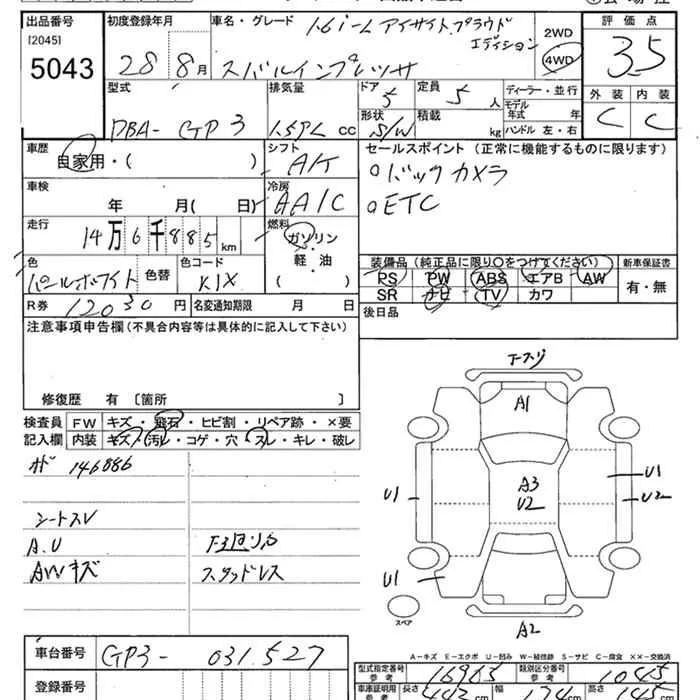 出品番号 初度登録年月 車名・グレード 1.6i-L アイサイトプラウド 2WD 評価点
[2045] エディション
5043 28 8月 スバルインプレッサ 4WD 3.5
型式 排気量 ドア 定員 ディーラー・並行 外装 内装
DBA- GP3 cc 5 5人 モデル年式 年 C C
形状 S/W 積載 kg ハンドル 左・右
車歴 シフト セールスポイント(正常に機能するものに限ります)
自家用・( ) 。バックカメラ
車検 冷房 。ETC
年 月( 日) AAIC
走行 燃料
14万6千885km ガソリン
軽・油 装備品(純正品に限り〇をつけてください) 新車保証書
色 色替 色コード ( ) PS PW ABS エアB AW 有・無
パールホワイト K1X SR ナビ TV カワ
R券 12030円 名変通知期限 月 日 後日品
注意事項申告欄(不具合内容等は具体的に記入して下さい)
修復歴 有 〔箇所
検査員 FW キズ・飛石・ヒビ割・リペア跡・×要
記入欄 内装 キズ・汚レ・コゲ・穴・スレ・キレ・破レ
146886
シートスレ
A.U
AWキズ スタッドレス
A1
A3
U2
U1 U1
U2
U1
スペア
A2
A-キズ E-エクボ U-凹み W-補修跡 S-サビ C-腐食 ××-交換済
車台番号 GP3- 031527 型式指定番号 参考 16965 類別区分番号 参考 1045
登録番号 車庫証明用 参考 長さ 442cm 幅 174cm 高さ 145cm